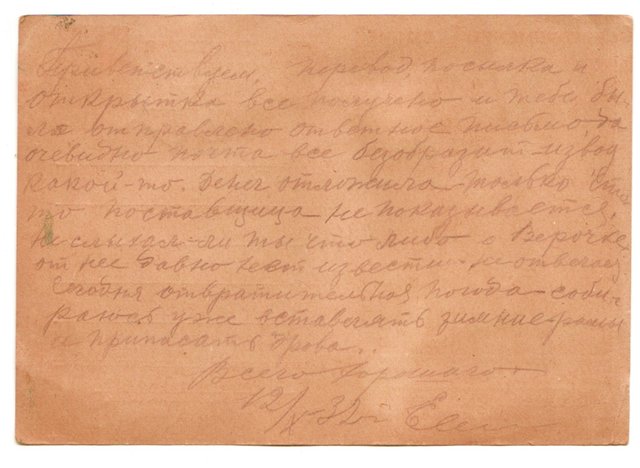 Приветствуем. Перевод, посылка и
открытка все получено и тебе бы-
ла отправлено ответное письмо, да
очевидно почта все безобразит - извод
какой-то. Денег отложила только
то поставщица не показывается.
Не слыхал-ли ты что либо о Верочке
от нее давно нет известий не отвечает
Сегодня отвратительная погода - соби-
раюсь уже вставлять зимние рамы
и припасать дрова..
Всего хорошаго
12/X 32 г.